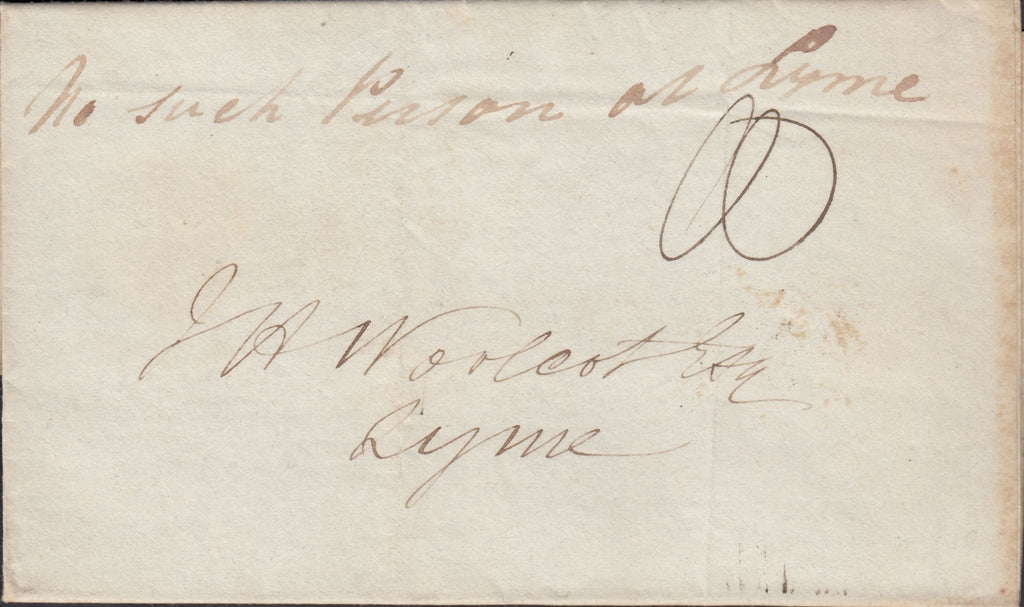 No such Person at Lyme
J H Woolcot Esq
Lyme